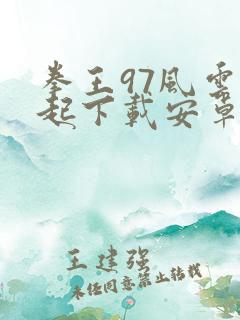 拳王97風雲
起下載安卓
王建强
未经同意禁止转载